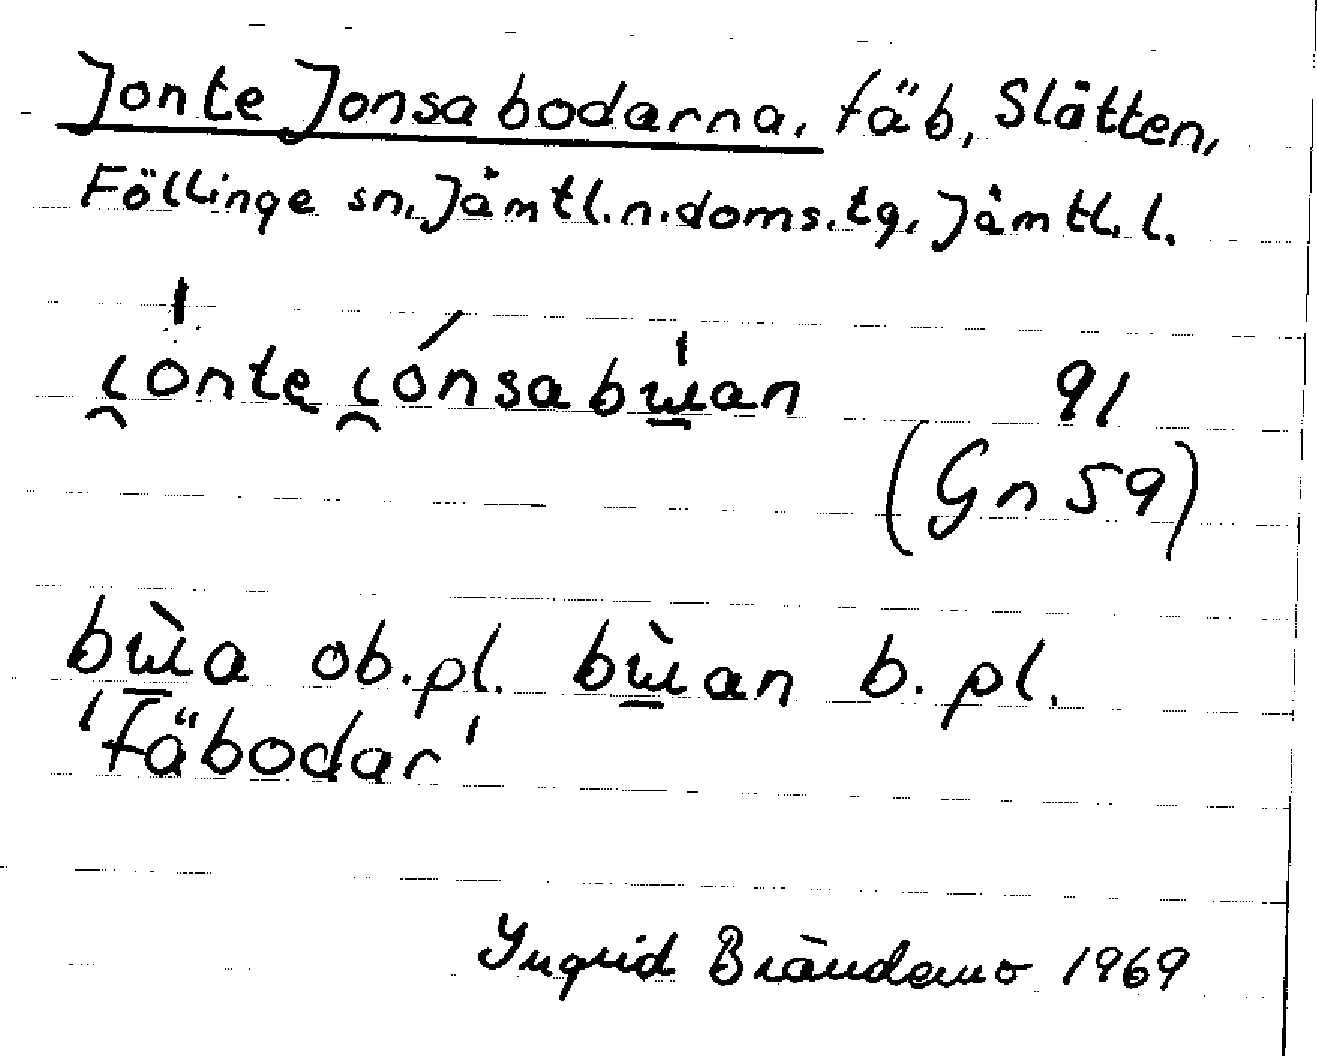 Jonte Jonsabodarna, fäb, Slätten,
Föllinge sn, Jämtl. n. doms. tg, Jämtl. l.
ı̯ònte̜ ı̯ónsabɯ̱̀an 91
(Gn 59)
bɯ̱̀a ob. pl. bɯ̱̀an b. pl.
'fäbodar'
Ingrid Brändemo 1969